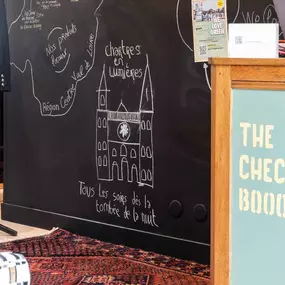 Nos produits
locaux
Région Centre Val de Loire
Chartres
en
Lumières
Tous les soirs dès la
tombée de la nuit
THE
CHEC
BOOO